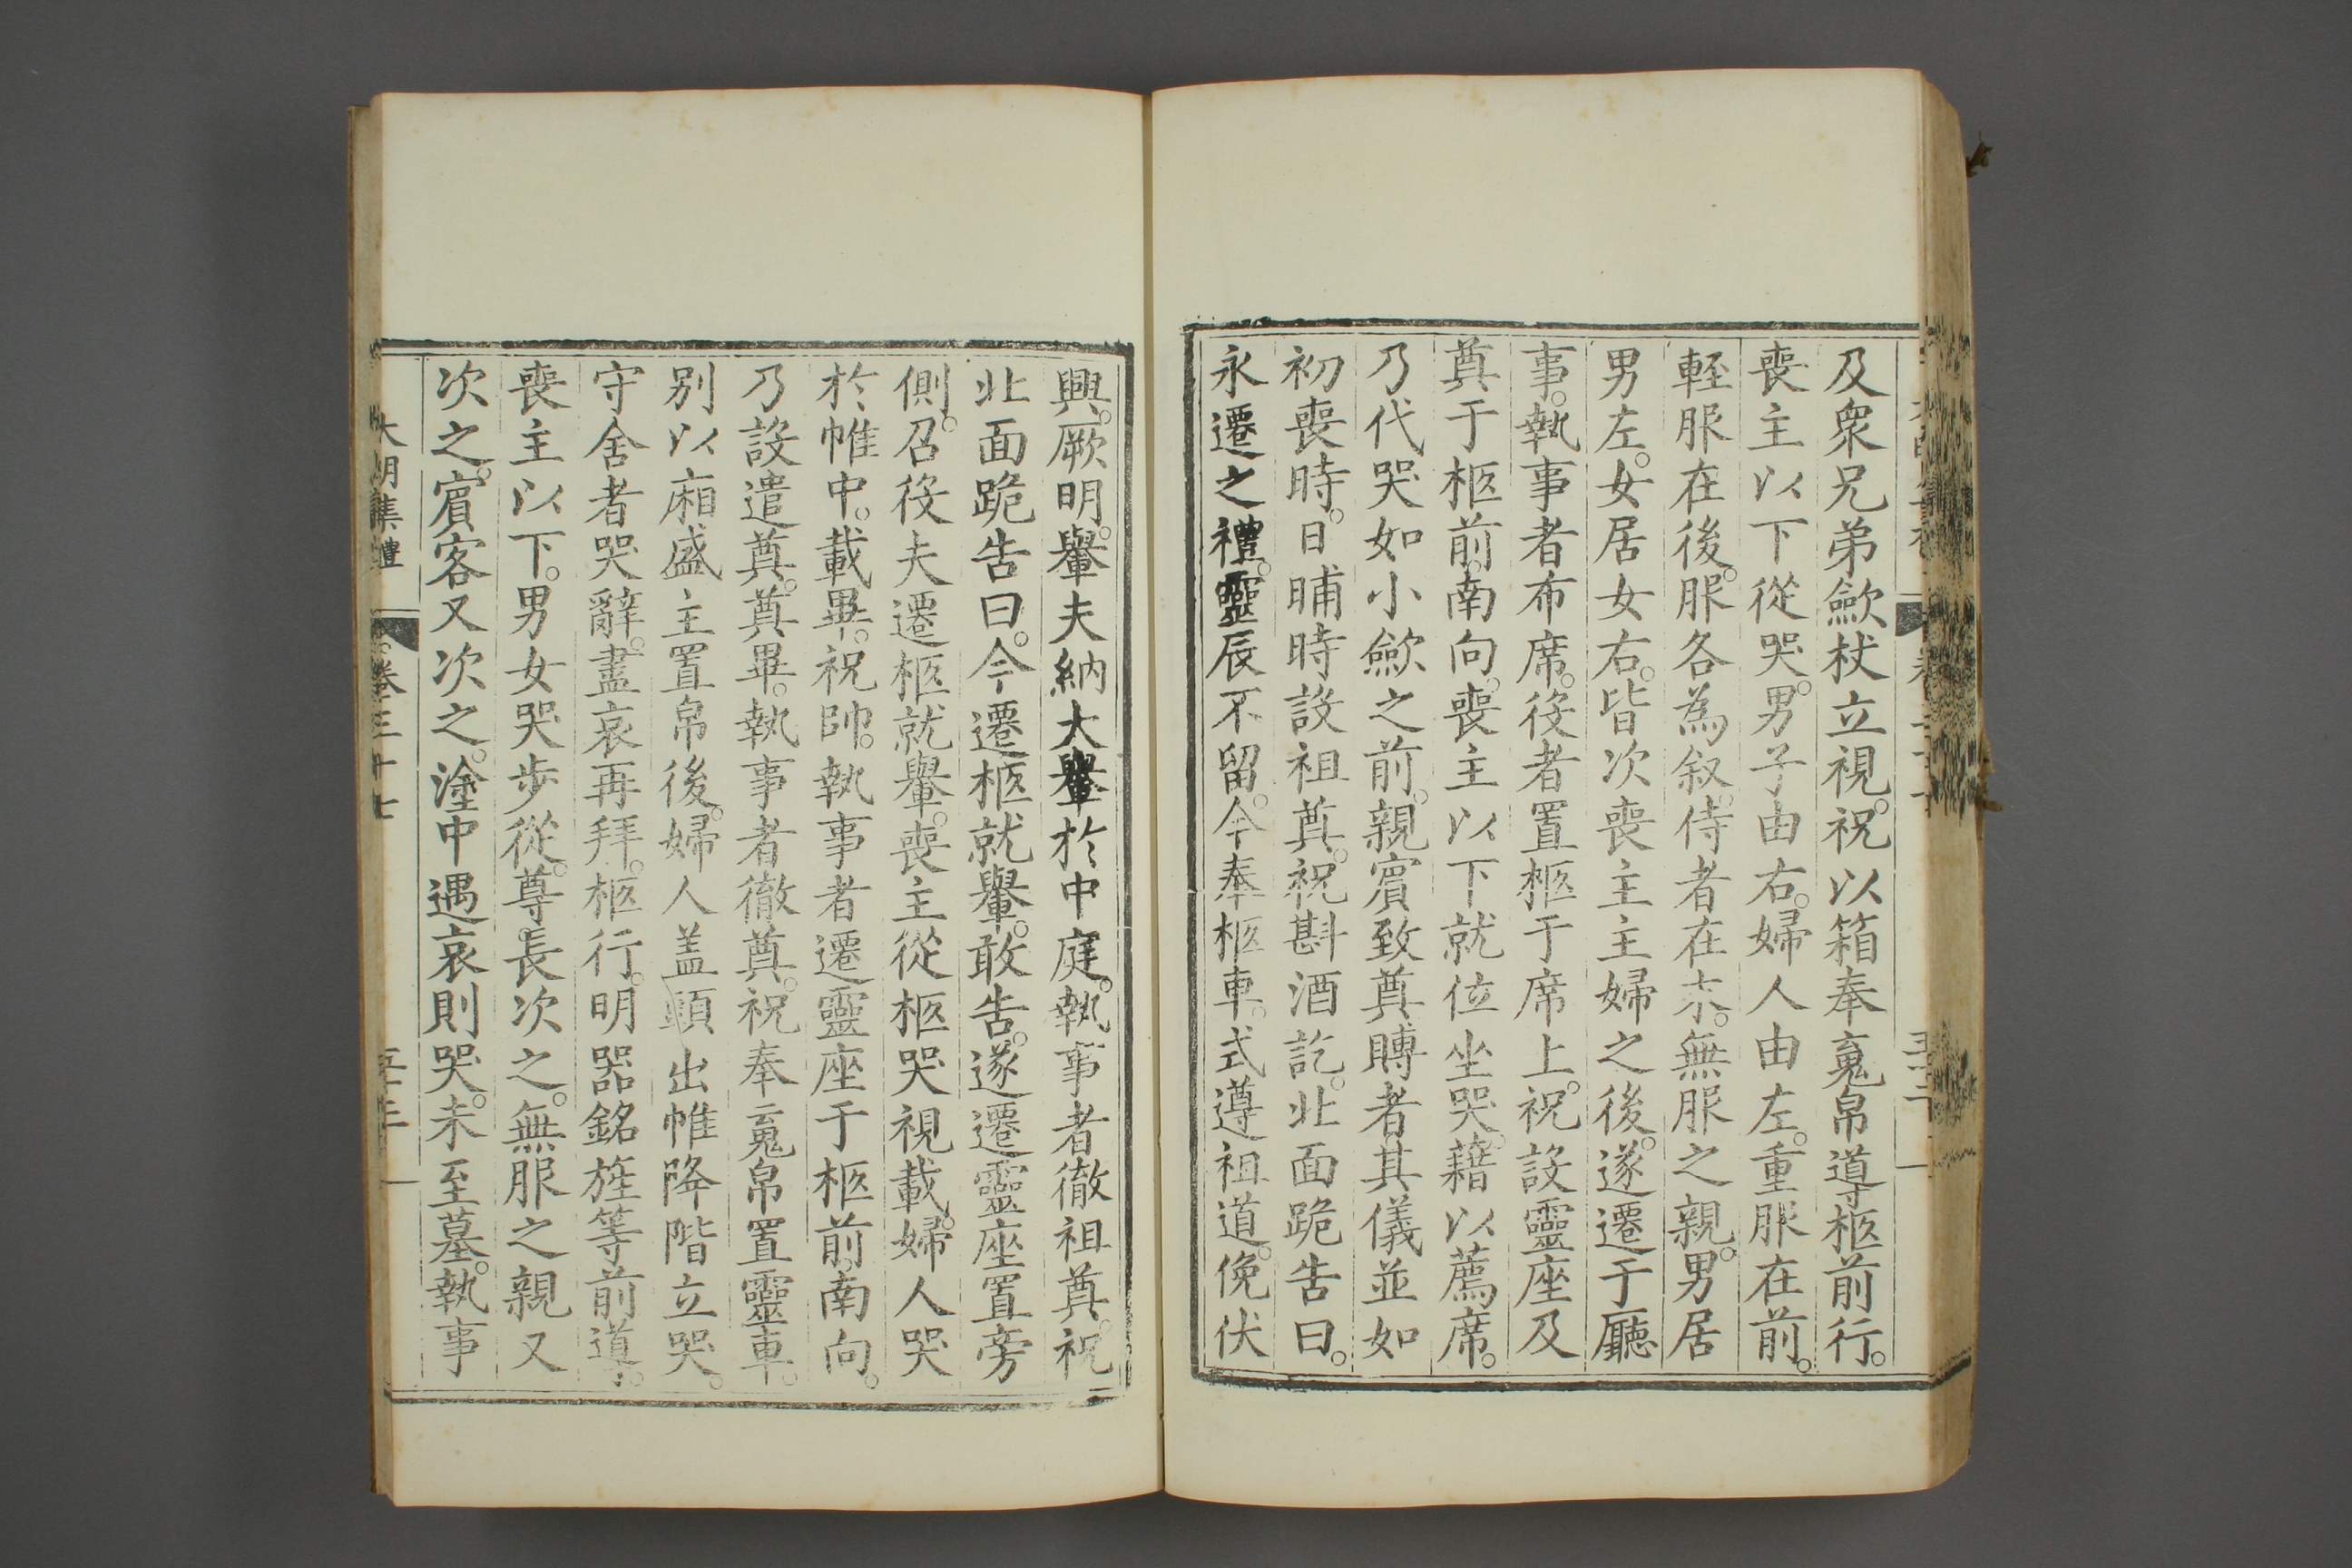 及衆兄弟歛杖立視。祝以箱奉䰟帛導柩前行。
喪主以下從哭。男子由右。婦人由左。重服在前。
輕服在後。服各為叙。侍者在末。無服之親。男居
男左。女居女右。皆次喪主主婦之後。遂遷于廳
事。執事者布席。役者置柩于席上。祝設靈座及
奠于柩前。南向。喪主以下就位坐哭。藉以薦席。
乃代哭如小歛之前。親賔致奠賻者其儀並如
初喪時。日晡時設祖奠。祝斟酒訖。北面跪告曰。
永遷之禮。靈辰不留。今奉柩車。式遵祖道。俛伏
興。厥明。轝夫納大轝於中庭。執事者徹祖奠。祝
北面跪告曰。今遷柩就轝。敢告。遂遷靈座置旁
側。召役夫遷柩就轝。喪主從柩哭視載。婦人哭
於帷中。載畢。祝帥。執事者遷靈座于柩前。南向。
乃設遣奠。奠畢。執事者徹奠。祝奉䰟帛置靈車。
别以廂盛主置帛後。婦人盖頭出帷降階立哭。
守舍者哭辭。盡哀再拜。柩行。明器銘旌等前導。
喪主以下。男女哭步從。尊長次之。無服之親又
次之。賔客又次之。塗中遇哀則哭。未至墓。執事
大明集禮 卷三十七 五十三